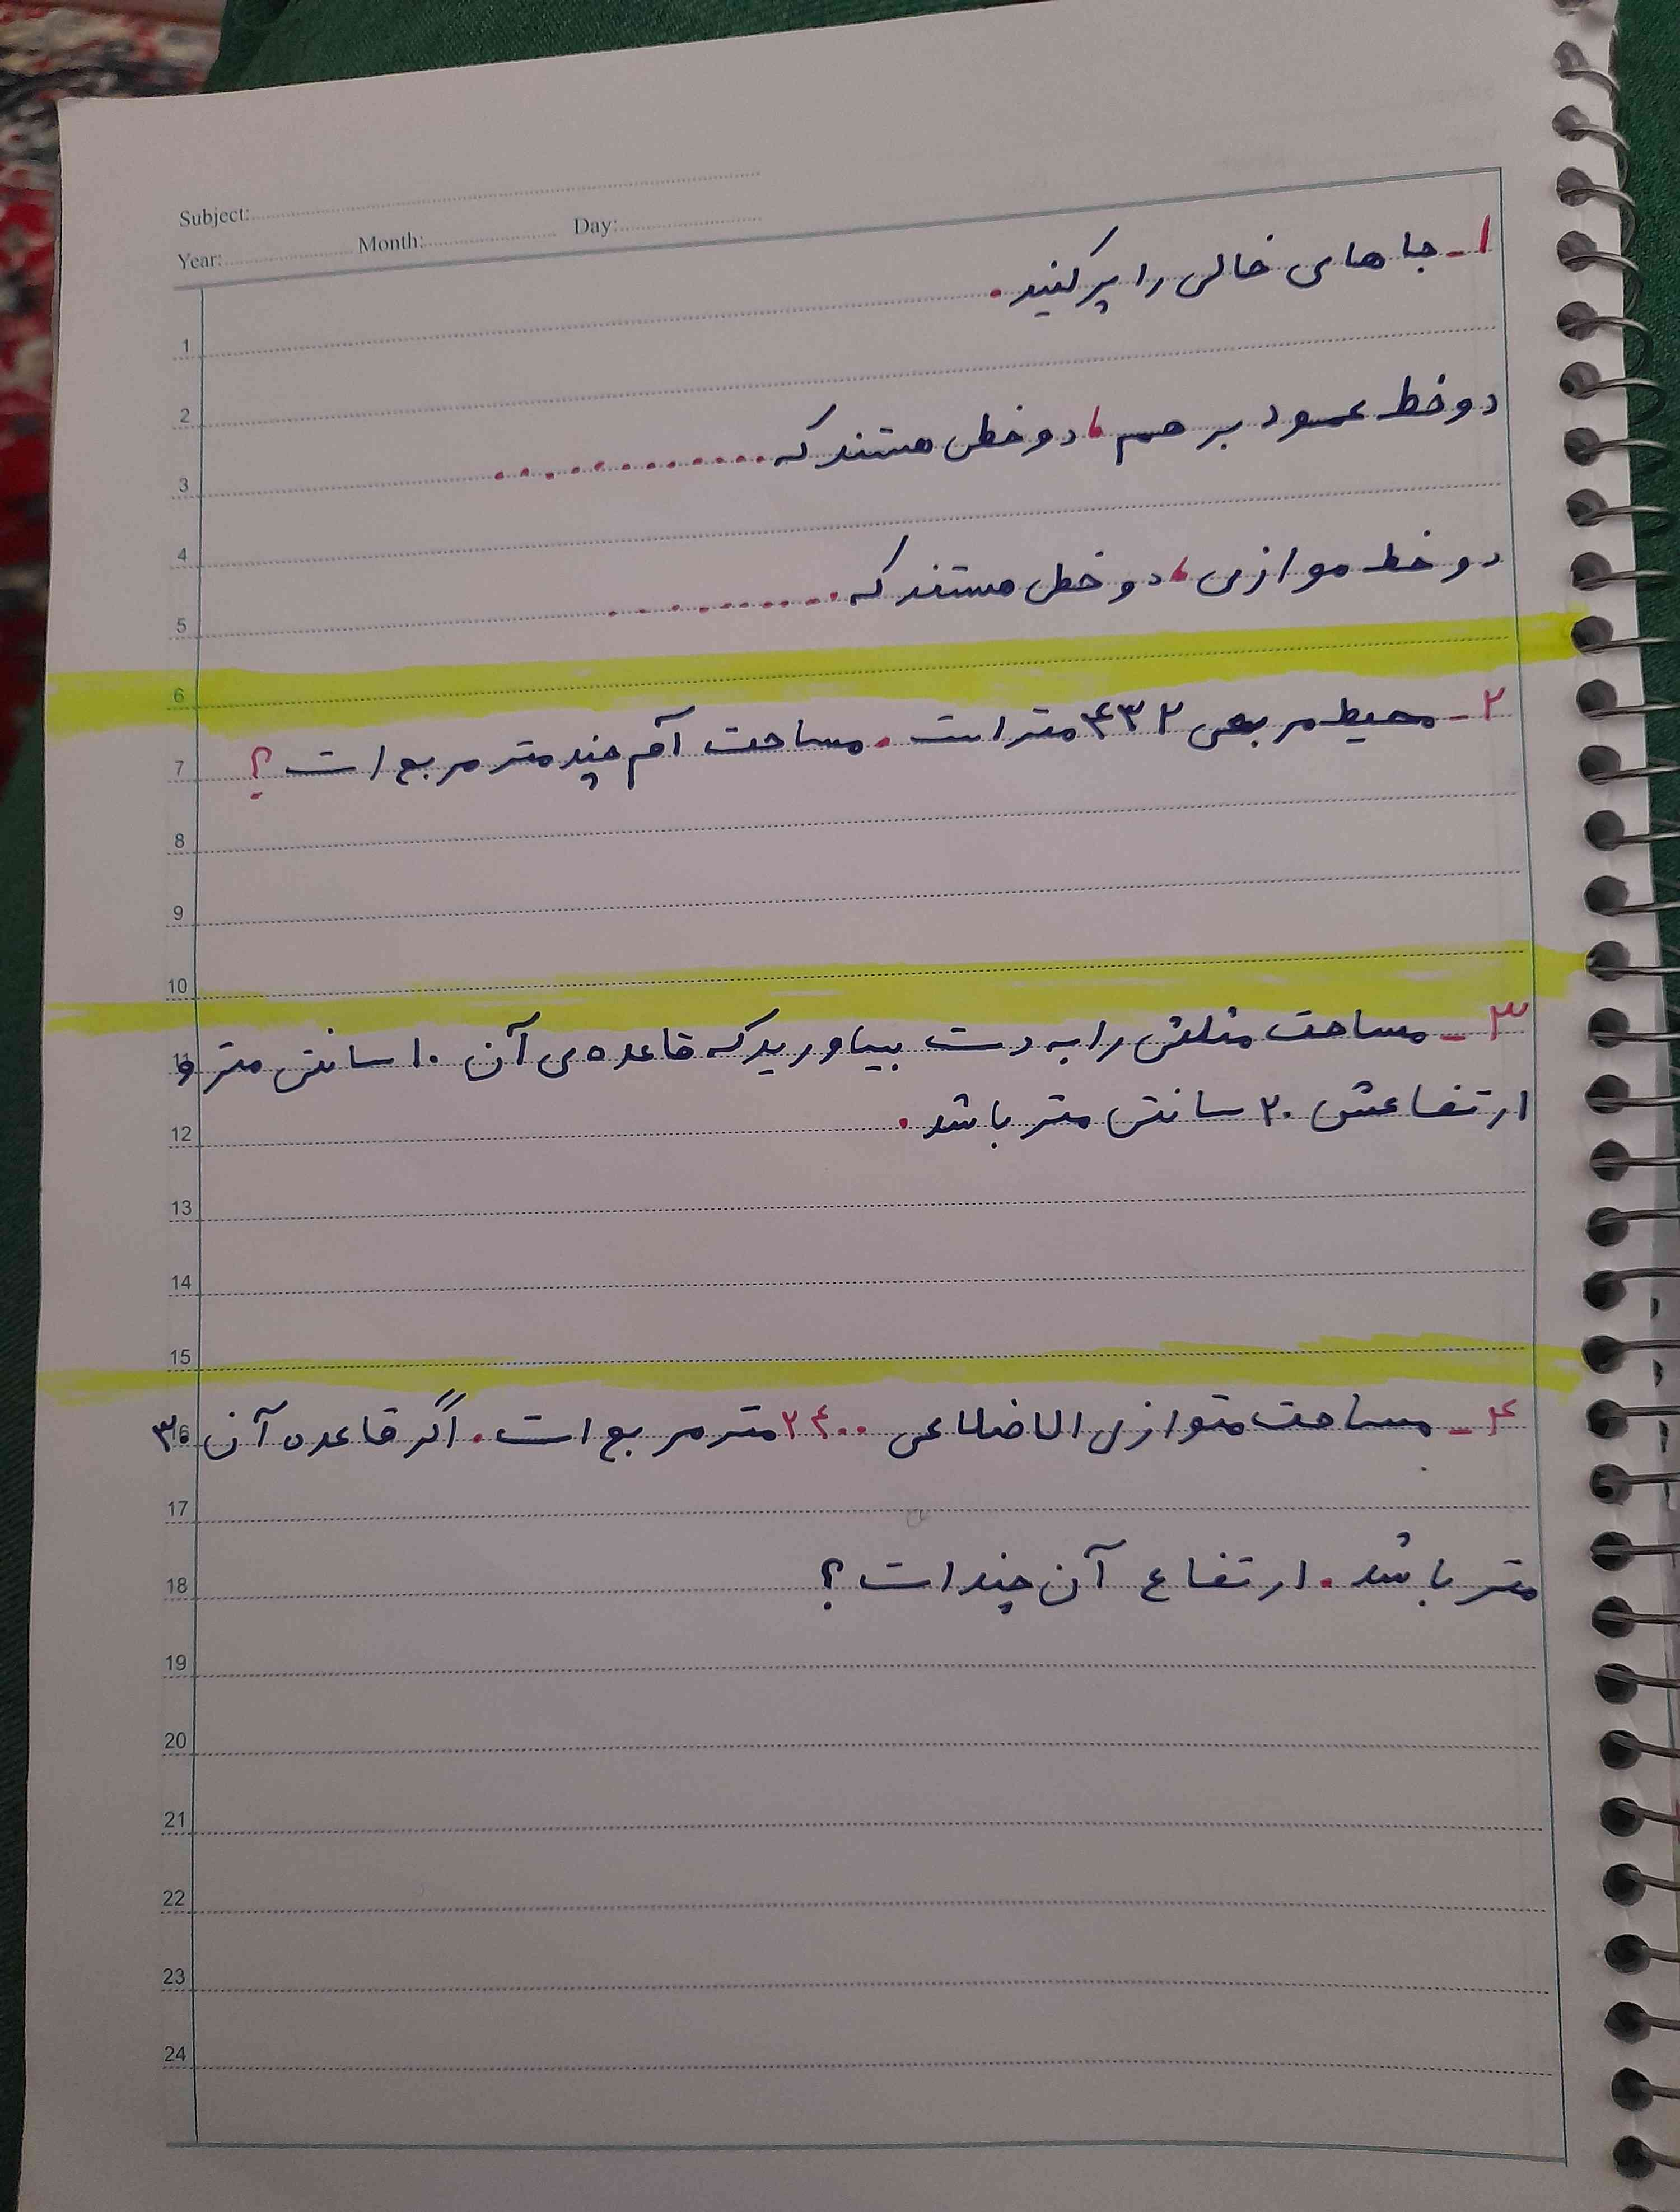 Subject:
Year: Month: Day:
۱_ جا های خالی را پر کنید.
1
2
دو خط عمود بر هم، دو خطی هستند که ............
3
4
دو خط موازی، دو خطی هستند که ..........
5
6
۲_ محیط مربعی ۴۳۲ متر است. مساحت آن چند متر مربع است؟
7
8
9
10
۳_ مساحت مثلثی را به دست بیاورید که قاعده ی آن ۱۰ سانتی متر و
11
ارتفاعش ۲۰ سانتی متر باشد.
12
13
14
15
۴_ مساحت متوازی الاضلاعی ۲۴۰۰ متر مربع است. اگر قاعده آن ۳۰
16
17
متر باشد. ارتفاع آن چند است؟
18
19
20
21
22
23
24